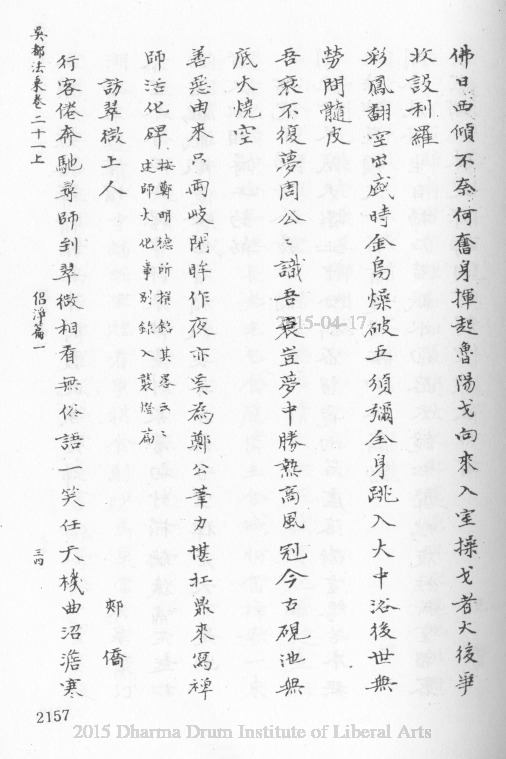 佛日西傾不奈何奮身揮起魯陽戈向來入室操戈者火後爭
收設利羅
彩鳳翻空出盛時金烏爍破五須彌全身跳入火中浴後世無
勞問髓皮
吾衰不復夢周公公識吾衰豈夢中勝熱高風冠今古硯池無
底火燒空
善惡由來只兩岐開眸作夜亦奚為鄭公筆力堪扛鼎來寫禪
師活化碑 按鄭明德所撰銘其畧云云
述師火化事別錄入襲燈篇
訪翠微上人
郟僑
行客倦奔馳尋師到翠微相看無俗語一笑任天機曲沼澹寒
吳都法乘卷二十一上 侶淨篇一 三四
2157
2015-04-17
2015 Dharma Drum Institute of Liberal Arts